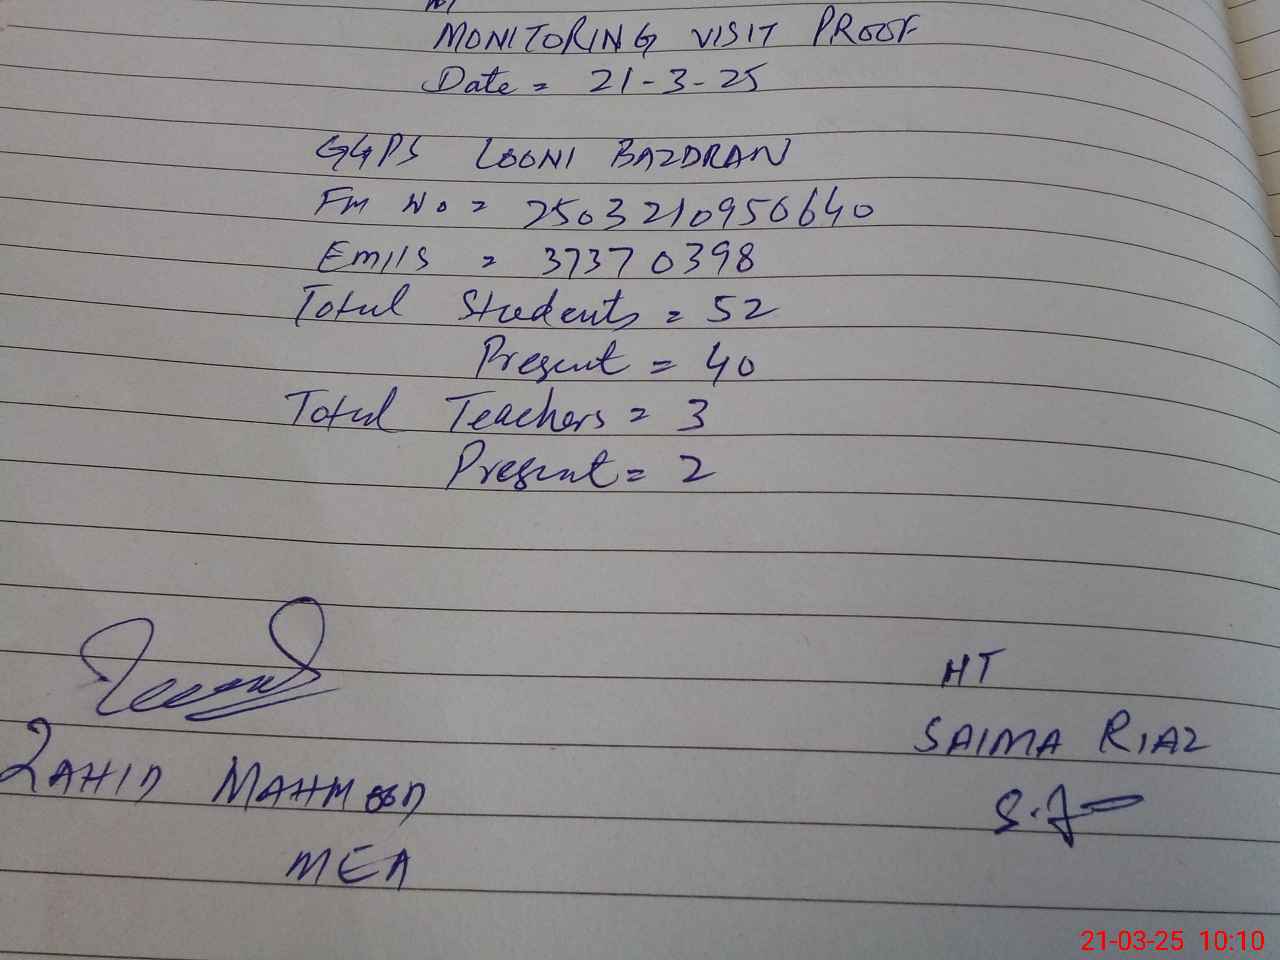 MONITORING VISIT PROOF
Date = 21-3-25
GGPS LOONI BAZDRAN
Fm No = 2503210956640
Emils = 37370398
Total Students = 52
Present = 40
Total Teachers = 3
Present = 2
HT
SAIMA RIAZ
ZAHID MAHMOOD
MEA
21-03-25 10:10